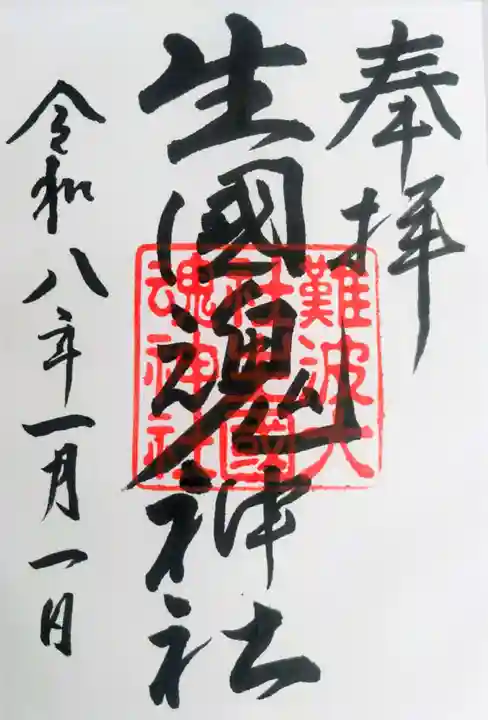 奉拝
生國魂神社
難波大社生國魂神社
令和八年一月一日